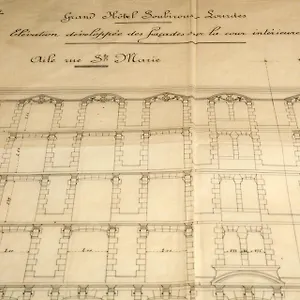 Grand Hôtel Soubirous Lourdes
Elévation développée des façades sur la cour intérieure
Aile rue Ste Marie